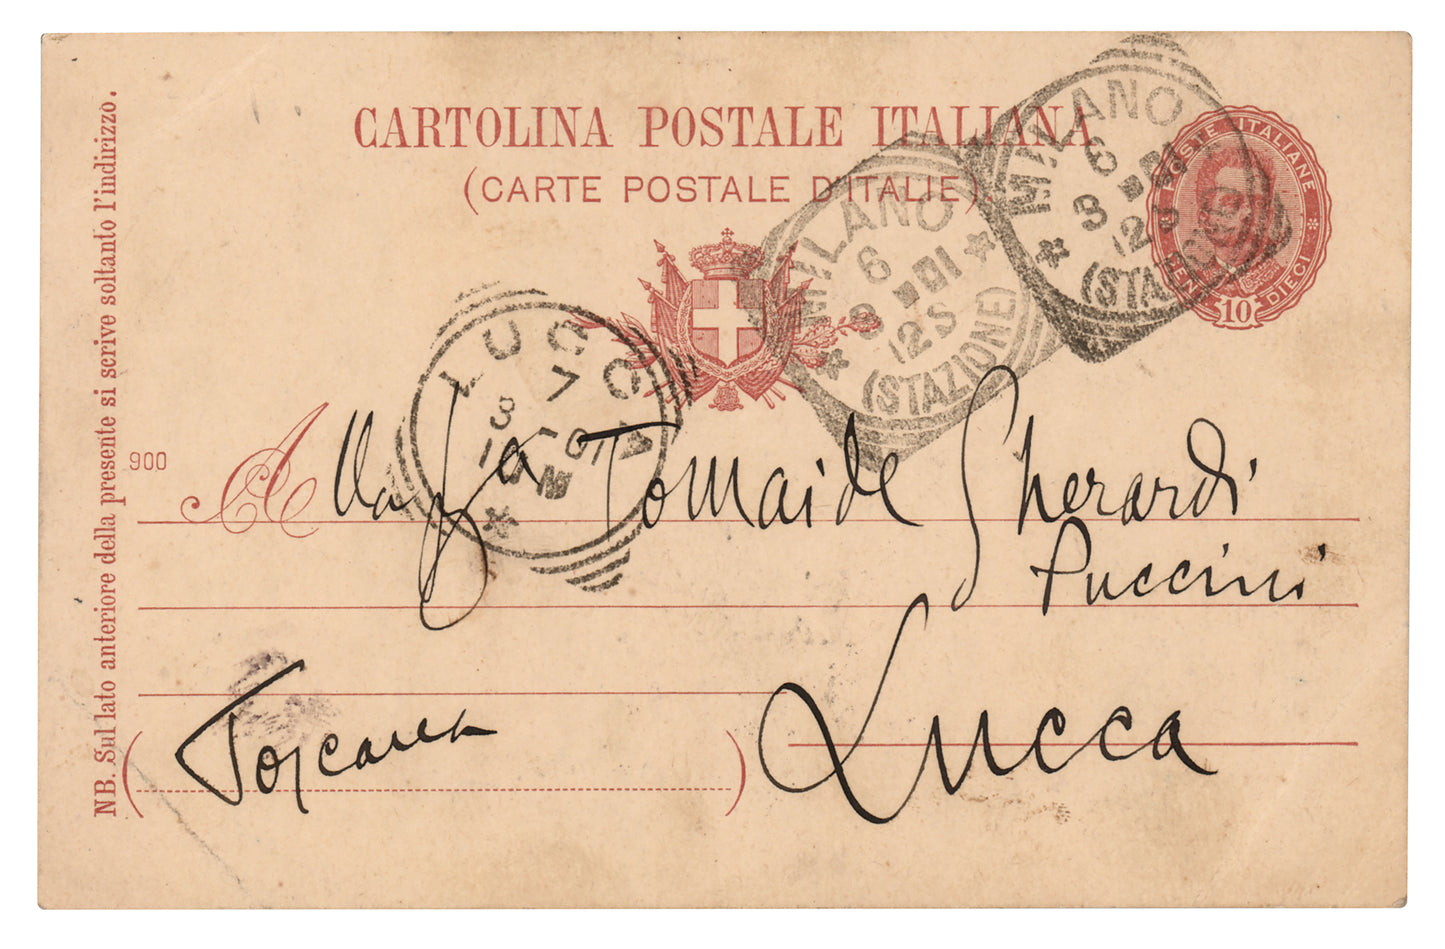 CARTOLINA POSTALE ITALIANA
(CARTE POSTALE D'ITALIE)
POSTE ITALIANE
DIECI
10
MILANO
6
3 01
12 S
(STAZIONE)
MILANO
6
3 01
12 S
(STAZIONE)
LUCCA
7
3 - 01
10 M
NB. Sul lato anteriore della presente si scrive soltanto l'indirizzo.
900
Alla Sa Tomaide Gherardi
Puccini
Lucca
(Toscana)